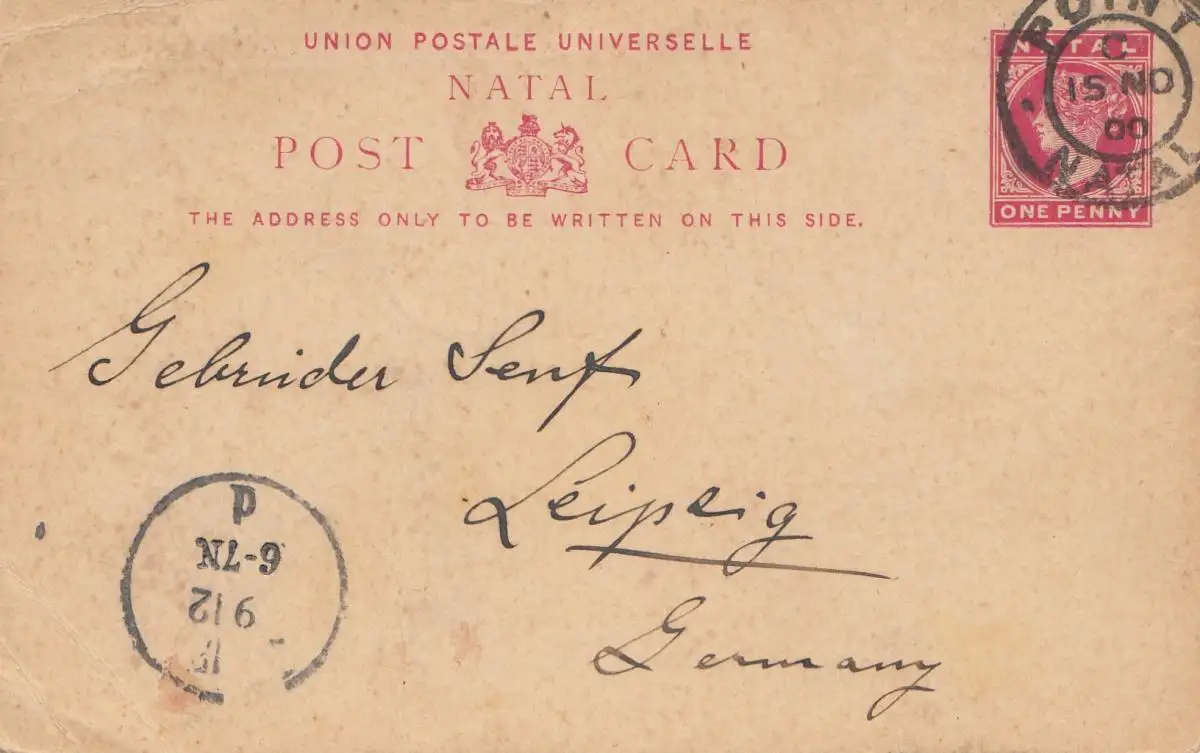 UNION POSTALE UNIVERSELLE
NATAL
POST CARD
THE ADDRESS ONLY TO BE WRITTEN ON THIS SIDE.
NATAL
ONE PENNY
POINT
C
15 NO
00
NATAL
Gebrüder Senf
Leipzig
Germany
d
6-7N
9 12